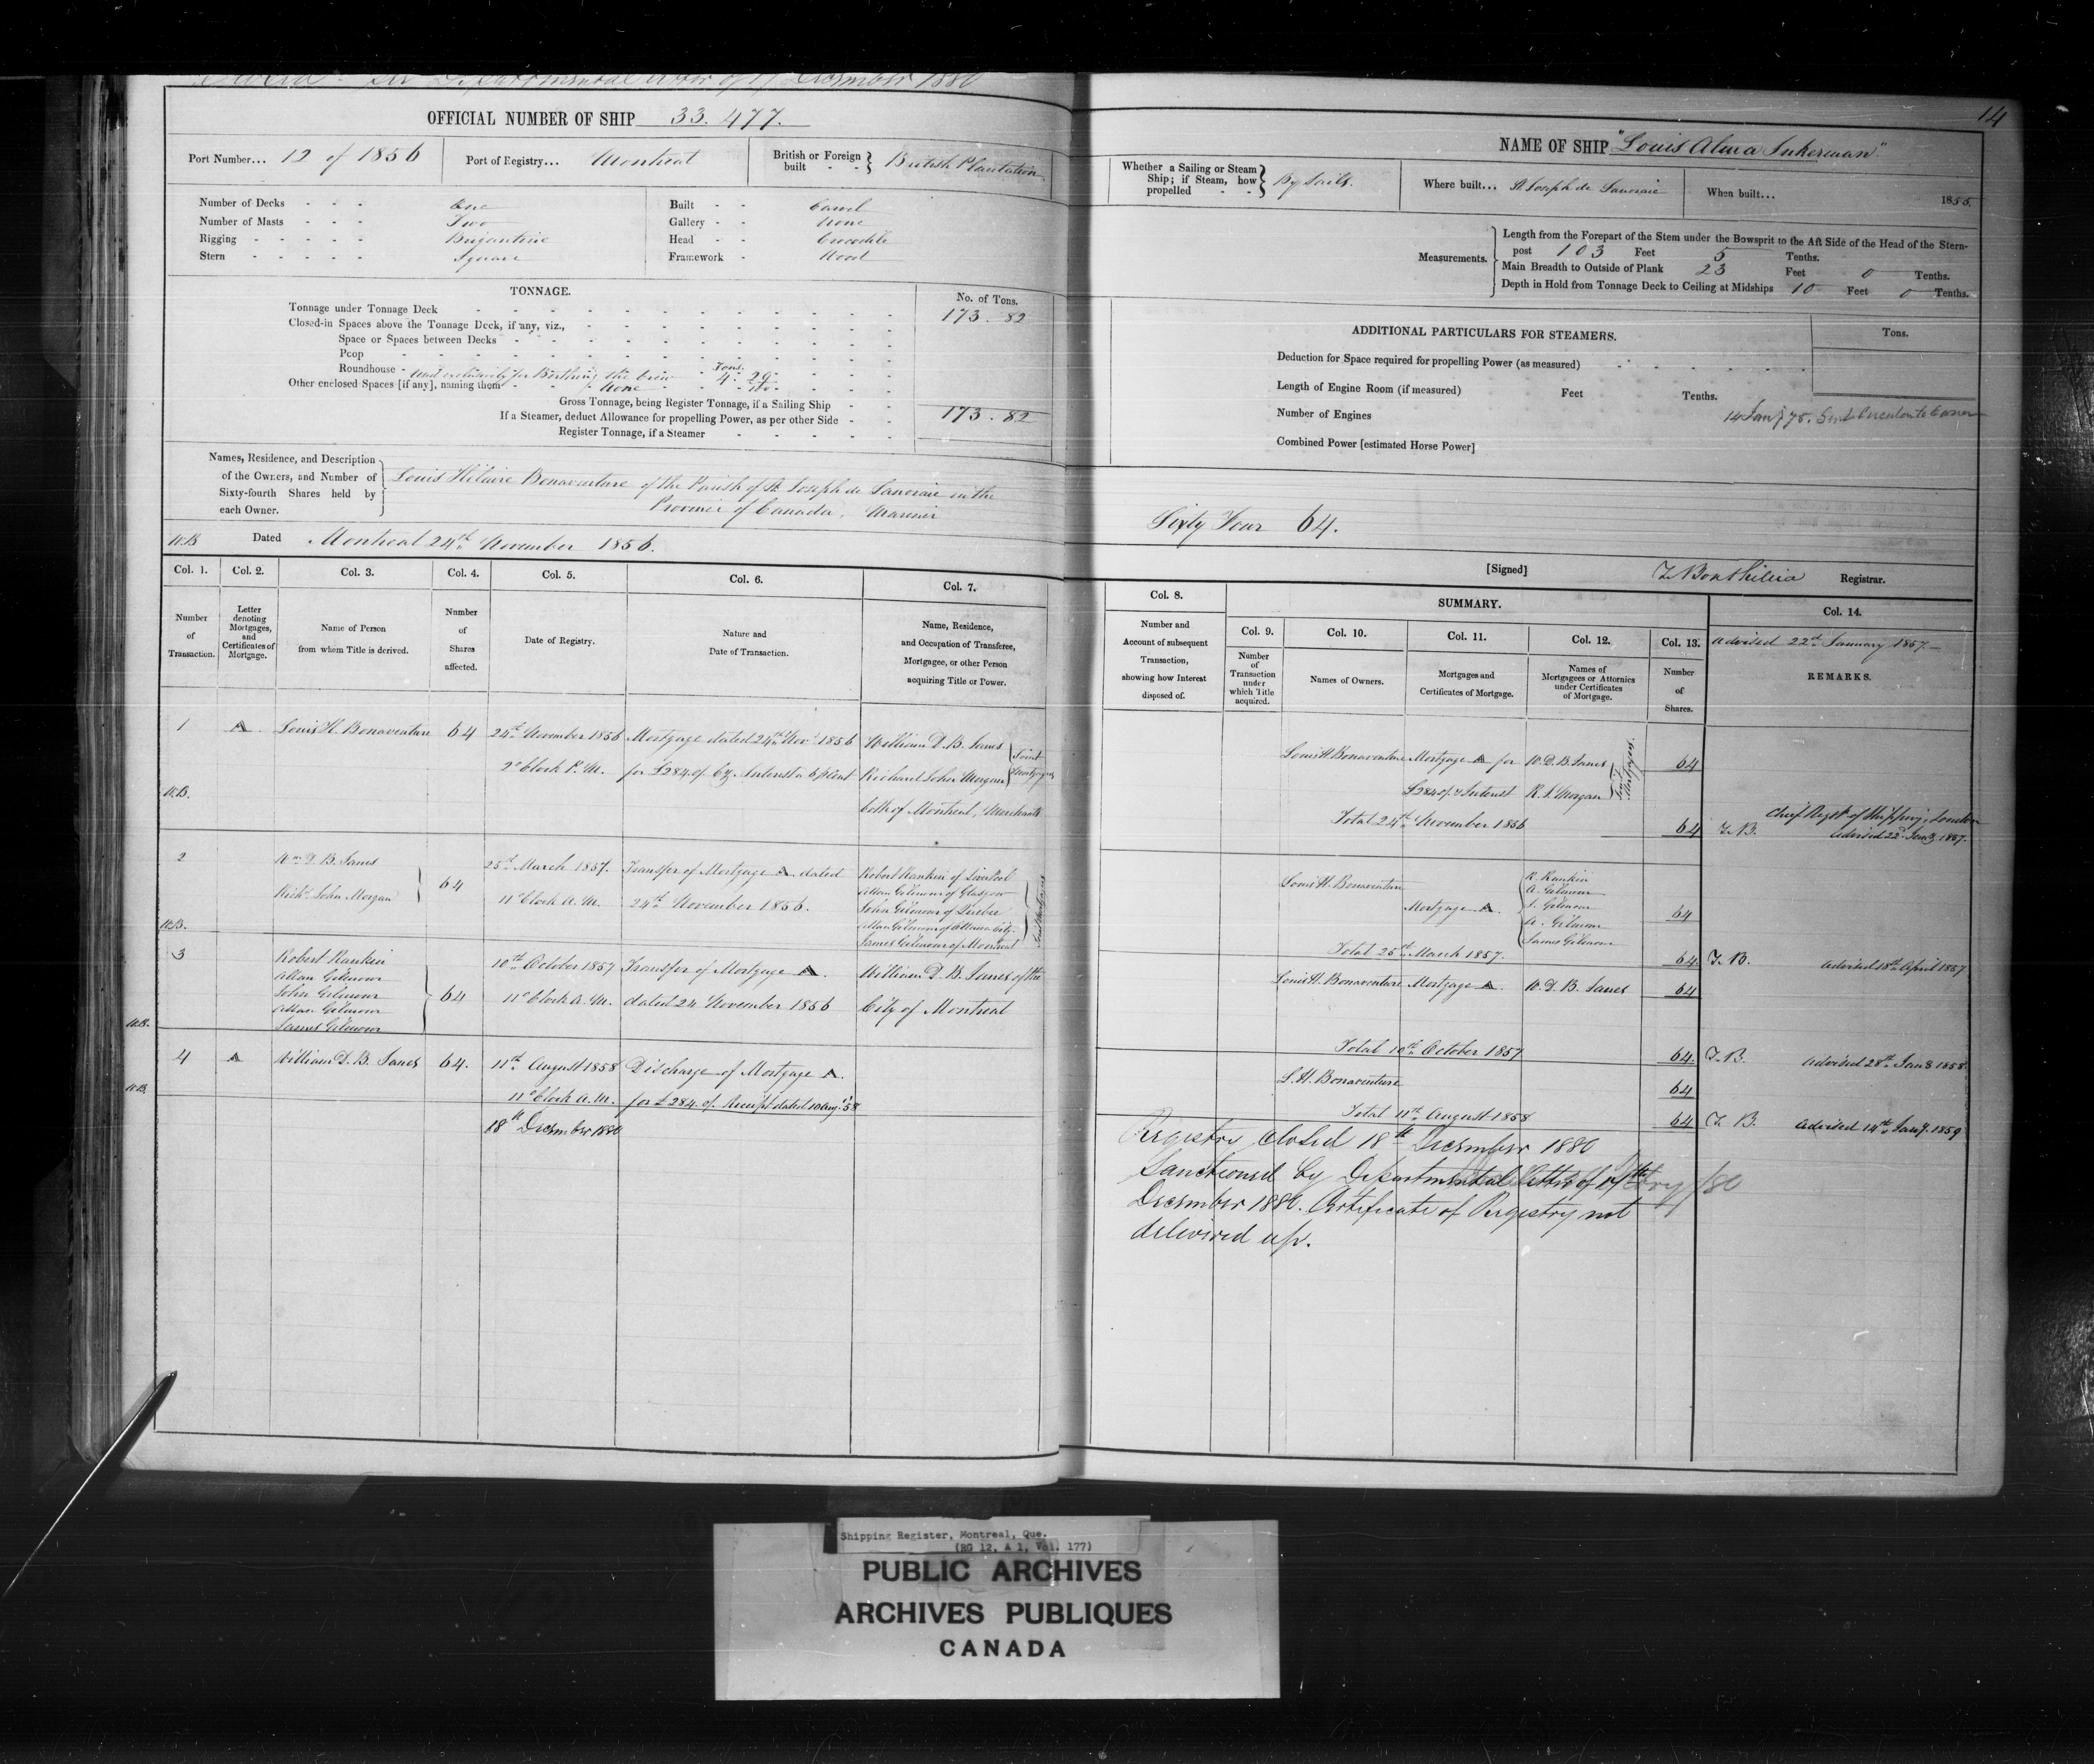 Departmental letter of 17 December 1880
OFFICIAL NUMBER OF SHIP 33.477.
Port Number... 12 of 1856
Port of Registry... Montreal
British or Foreign built - - British Plantation
Number of Decks - - - One
Number of Masts - - - Two
Rigging - - - - - Brigantine
Stern - - - - - Square
Built - - Carvel
Gallery - - None
Head - - Crocodile
Framework - Wood
TONNAGE.
No. of Tons.
Tonnage under Tonnage Deck 173.82
Closed-in Spaces above the Tonnage Deck, if any, viz.,
Space or Spaces between Decks
Poop
Roundhouse - used exclusively for Berthing the Crew Tons. 4.29
Other enclosed Spaces [if any], naming them None
Gross Tonnage, being Register Tonnage, if a Sailing Ship 173.82
If a Steamer, deduct Allowance for propelling Power, as per other Side
Register Tonnage, if a Steamer
Names, Residence, and Description
of the Owners, and Number of
Sixty-fourth Shares held by
each Owner.
Louis Hilaire Bonaventure of the Parish of St Joseph de Lanoraie in the
Province of Canada, Mariner
Dated Montreal 24th November 1856.
Col. 1. Col. 2. Col. 3. Col. 4. Col. 5. Col. 6. Col. 7.
Number of Transaction.
Letter denoting Mortgages, and Certificates of Mortgage.
Name of Person from whom Title is derived.
Number of Shares affected.
Date of Registry.
Nature and Date of Transaction.
Name, Residence, and Occupation of Transferee, Mortgagee, or other Person acquiring Title or Power.
1 A. Louis H. Bonaventure 64 24th November 1856 Mortgage dated 24th Novr 1856 William D. B. Janes
2 o'Clock P.M. for £284. of Cy. Interest a 6 p Cent Richard John Morgan Joint Mortgagees
both of Montreal, Merchants
2 Wm D. B. Janes
Richd John Morgan 64
25th March 1857. Transfer of Mortgage A. dated
11 o'Clock A.M. 24th November 1856.
Robert Rankin of Liverpool
Allan Gilmour of Glasgow
John Gilmour of Quebec
Allan Gilmour of Ottawa City
James Gilmour of Montreal
Joint Mortgagees
3 Robert Rankin
Allan Gilmour
John Gilmour
Allan Gilmour
James Gilmour
64
10th October 1857 Transfer of Mortgage A. William D. B. Janes of the
11 o'Clock A.M. dated 24 November 1856 City of Montreal
4 A William D. B. Janes 64. 11th August 1858 Discharge of Mortgage A.
11 o'Clock A.M. for £284. of. Receipt dated 10 Aug: '58
18th December 1880
14
NAME OF SHIP "Louis Alma Inkerman"
Whether a Sailing or Steam Ship; if Steam, how propelled - - By Sails.
Where built... St Joseph de Lanoraie
When built... 1855.
Measurements.
Length from the Forepart of the Stem under the Bowsprit to the Aft Side of the Head of the Stern-
post 103 Feet 5 Tenths.
Main Breadth to Outside of Plank 23 Feet 0 Tenths.
Depth in Hold from Tonnage Deck to Ceiling at Midships 10 Feet 0 Tenths.
ADDITIONAL PARTICULARS FOR STEAMERS.
Tons.
Deduction for Space required for propelling Power (as measured)
Length of Engine Room (if measured) Feet Tenths.
Number of Engines
14 Jany 78. Sent Circular to Owner
Combined Power [estimated Horse Power]
Sixty Four 64.
[Signed] T. Bouthillier Registrar.
Col. 8. SUMMARY. Col. 14.
Col. 9. Col. 10. Col. 11. Col. 12. Col. 13.
Advised 22nd January 1857.
Number and Account of subsequent Transaction, showing how Interest disposed of.
Number of Transaction under which Title acquired.
Names of Owners.
Mortgages and Certificates of Mortgage.
Names of Mortgagees or Attornies under Certificates of Mortgage.
Number of Shares.
REMARKS.
Louis H. Bonaventure Mortgage A for W. D. B. Janes 64
£284 of. & Interest R. J. Morgan Joint Mortgagees.
Total 24th November 1856 64 T.B. Chief Regr of Shipping, London
Advised 22d Jany 1857.
Louis H. Bonaventure
Mortgage A.
R. Rankin
A. Gilmour
J. Gilmour
A. Gilmour
James Gilmour
64
Total 25th March 1857. 64 T.B. Advised 18th April 1857
Louis H. Bonaventure Mortgage A. W. D. B. Janes 64
Total 10th October 1857 64. T.B. Advised 28th Jany 1858
L. H. Bonaventure 64
Total 11th August 1858 64 T.B. Advised 14th Jany. 1859
Registry Closed 18th December 1880
Sanctioned by Departmental letter of 17th
December 1880. Certificate of Registry not
delivered up.
Shipping Register, Montreal, Que.
(RG 12, A 1, Vol. 177)
PUBLIC ARCHIVES
ARCHIVES PUBLIQUES
CANADA